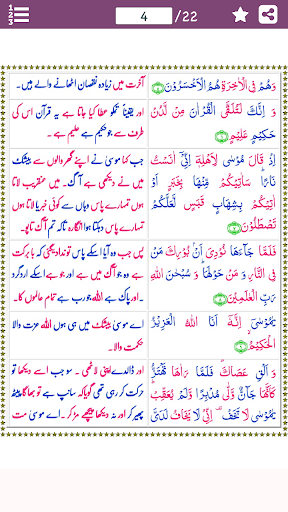 123
4
/22
وَهُمْ فِي الْاٰخِرَةِ هُمُ الْاَخْسَرُوْنَ
آخرت میں زیادہ نقصان اٹھانے والے ہیں۔
وَ اِنَّكَ لَتُلَقَّى الْقُرْاٰنَ مِنْ لَّدُنْ
حَكِيْمٍ عَلِيْمٍ
اور یقیناً تمکو عطا کیا جاتا ہے یہ قرآن اس کی
طرف سے جو حکیم ہے علیم ہے۔
اِذْ قَالَ مُوْسٰى لِاَهْلِهٖٓ اِنِّيْٓ اٰنَسْتُ
نَارًا سَاٰتِيْكُمْ مِّنْهَا بِخَبَرٍ اَوْ
اٰتِيْكُمْ بِشِهَابٍ قَبَسٍ لَّعَلَّكُمْ
تَصْطَلُوْنَ
جب کہا موسیٰ نے اپنے گھر والوں سے بیشک
میں نے دیکھی ہے آگ۔ میں عنقریب لاتا ہوں
تمہارے پاس وہاں سے کوئی خبر یا لاتا ہوں
تمہارے پاس دہکتا ہوا انگارہ تاکہ تم آگ تاپو۔
فَلَمَّا جَآءَهَا نُوْدِيَ اَنْۢ بُوْرِكَ مَنْ
فِي النَّارِ وَ مَنْ حَوْلَهَا وَ سُبْحٰنَ اللّٰهِ
رَبِّ الْعٰلَمِيْنَ
پس جب وہ آیا اسکے پاس تو ندا دیگئی کہ بابرکت
ہے وہ جو آگ میں ہے اور جو ہے اسکے اردگرد
اور پاک ہے اللہ جو رب ہے تمام عالموں کا۔
يٰمُوْسٰٓى اِنَّهٗٓ اَنَا اللّٰهُ الْعَزِيْزُ
الْحَكِيْمُ
اے موسیٰ بیشک میں ہی ہوں اللہ عزت والا
حکمت والا۔
وَ اَلْقِ عَصَاكَ فَلَمَّا رَاٰهَا تَهْتَزُّ
كَاَنَّهَا جَآنٌّ وَّلّٰى مُدْبِرًا وَّلَمْ يُعَقِّبْ
يٰمُوْسٰى لَا تَخَفْ اِنِّيْ لَا يَخَافُ لَدَيَّ
اور ڈالدے اپنی لاٹھی۔ سو جب اسے دیکھا تو
حرکت کر رہی تھی گویا کہ سانپ ہے تو بھاگا پیٹھ
پھیر کر اور نہ دیکھا پیچھے مڑ کر۔ اے موسیٰ مت